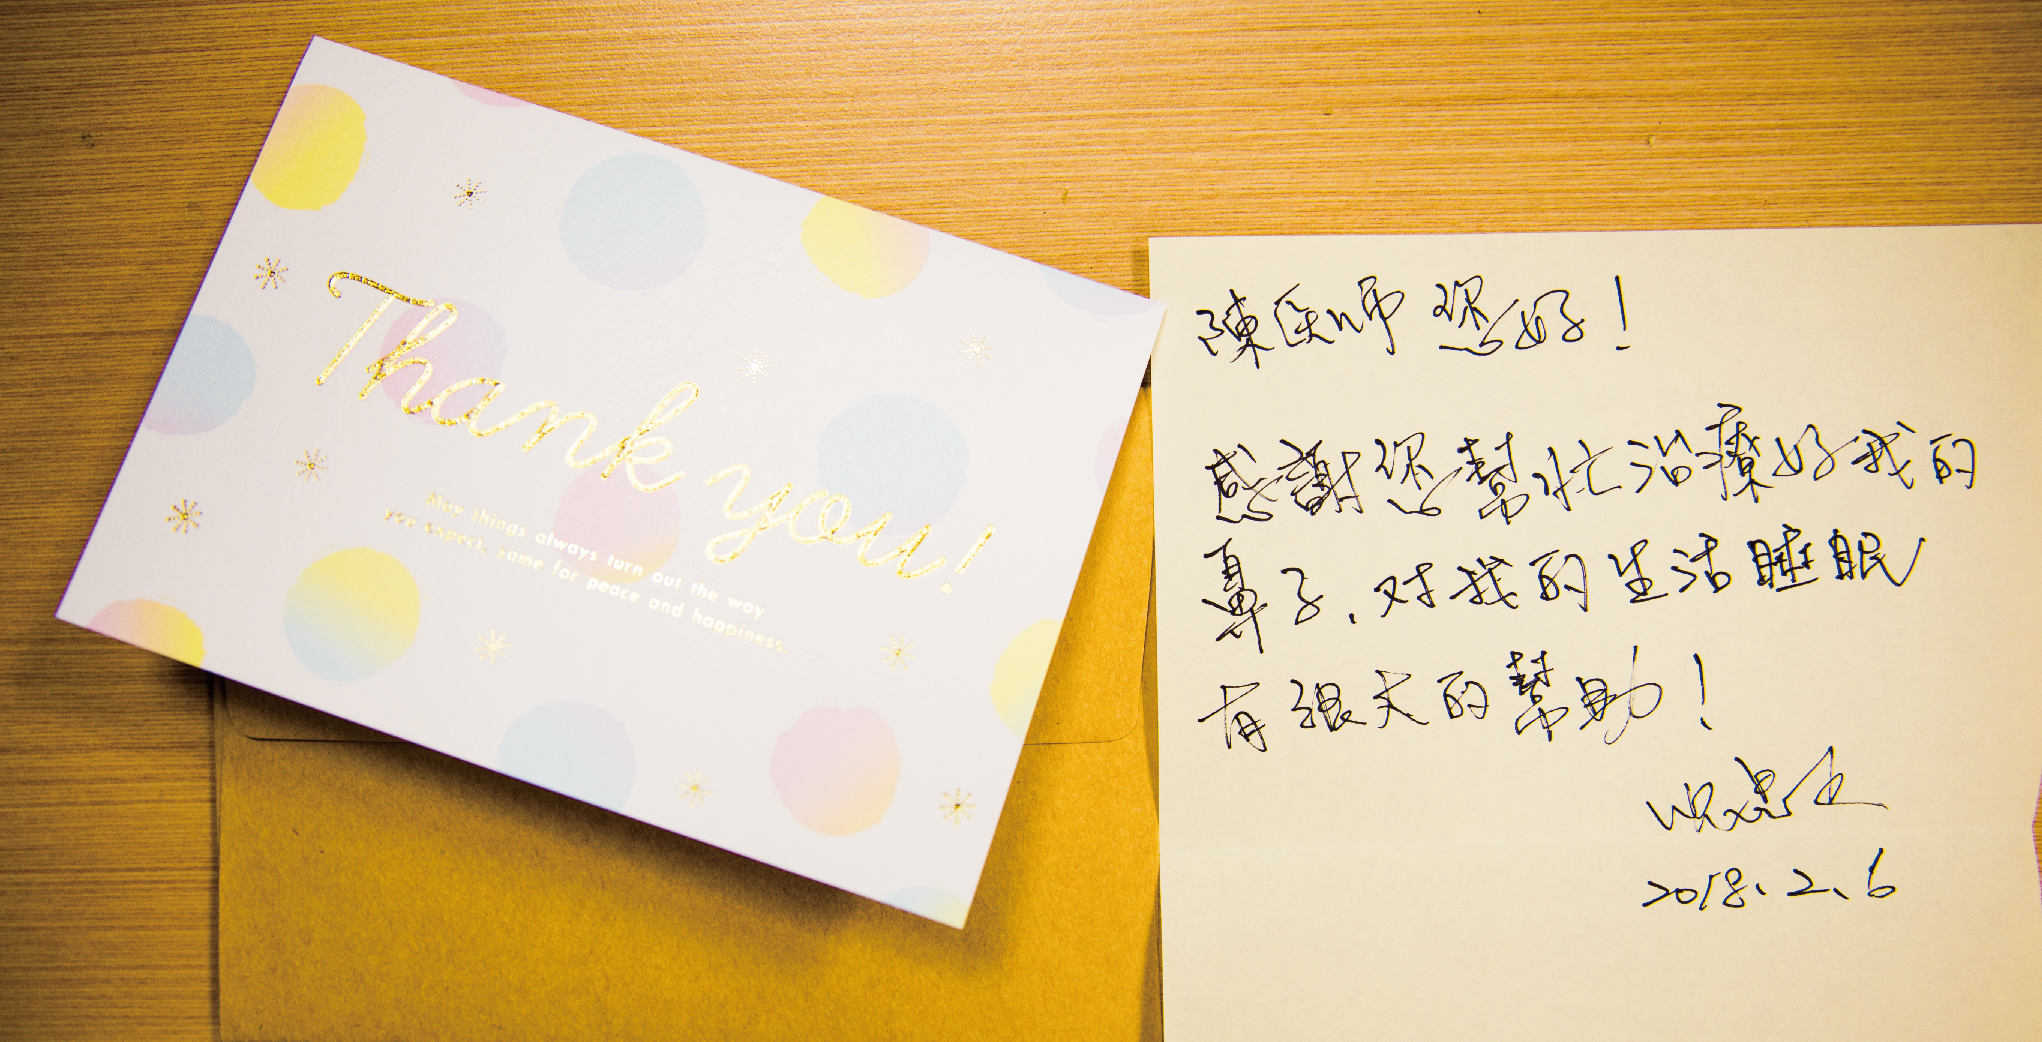 Thank you!
things always turn out the way
you expect, same for peace and happiness.
陳医师 您好！
感謝您幫忙治療好我的
鼻子，对我的生活睡眠
有很大的幫助！
2018、2、6